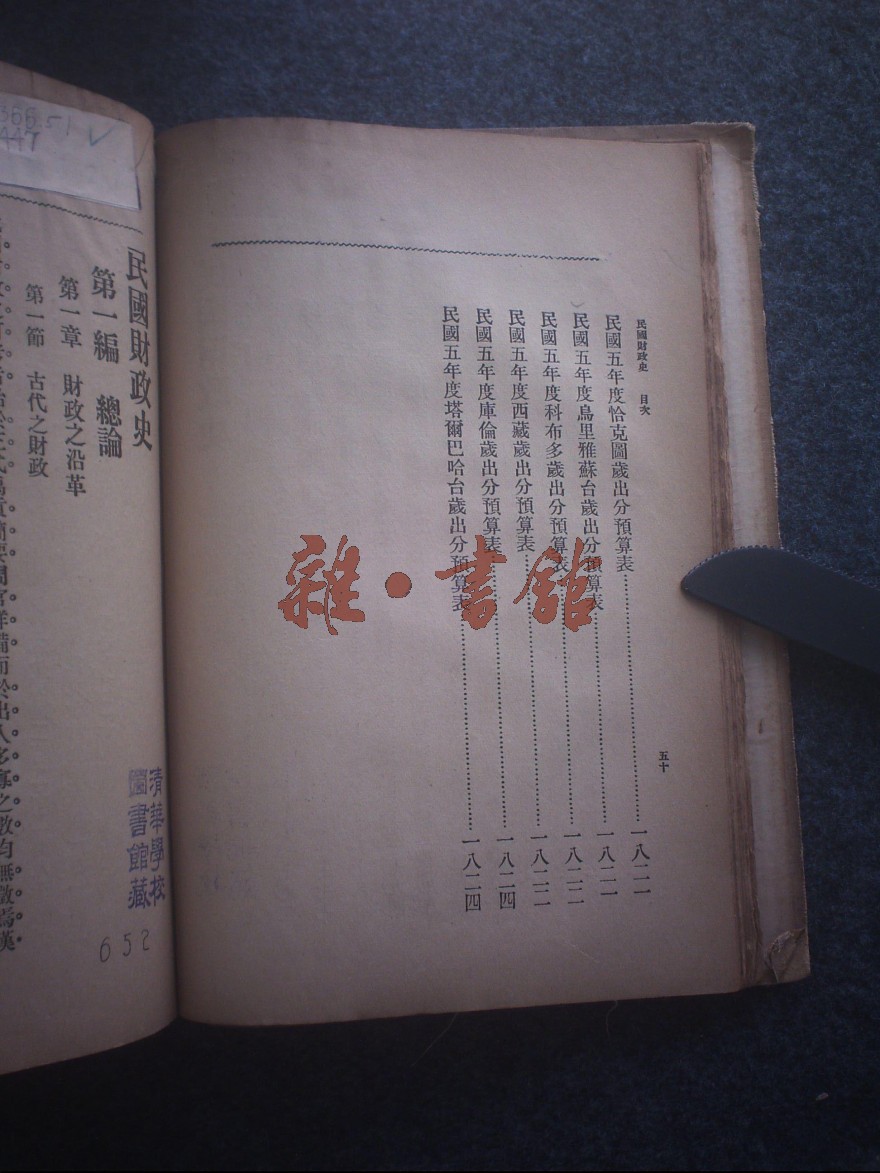 民國財政史 目次 五十
民國五年度恰克圖歲出分預算表……一八二一
民國五年度烏里雅蘇台歲出分預算表……一八二一
民國五年度科布多歲出分預算表……一八二二
民國五年度西藏歲出分預算表……一八二二
民國五年度庫倫歲出分預算表……一八二四
民國五年度塔爾巴哈台歲出分預算表……一八二四
雜·書館
366.51
447
民國財政史
第一編 總論
第一章 財政之沿革
第一節 古代之財政
簡要周官詳備而於出入多寡之數均無徵焉漢
清華學校
圖書館藏
652